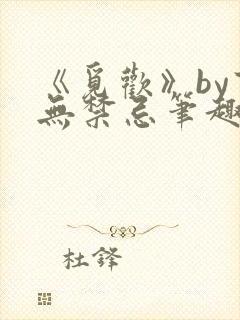 《覓歡》by
無禁忌筆趣
杜鋒